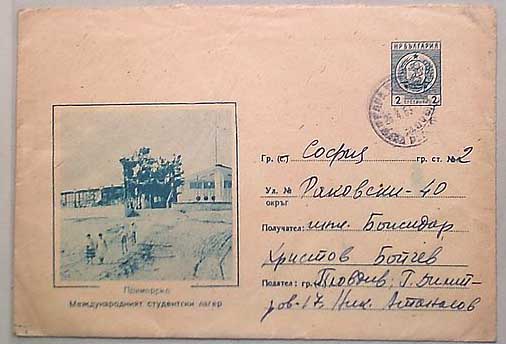 НР БЪЛГАРИЯ
2 СТОТИНКИ 2
Гр. (с) София гр. ст. № 2
Ул. № Раковски - 40
окръг
Получател: инж. Божидар
Христов Ботев
Подател: гр. (с) Пловдив, Г. Димит-
ров - 17. Ник. Атанасов
Приморско
Международният студентски лагер